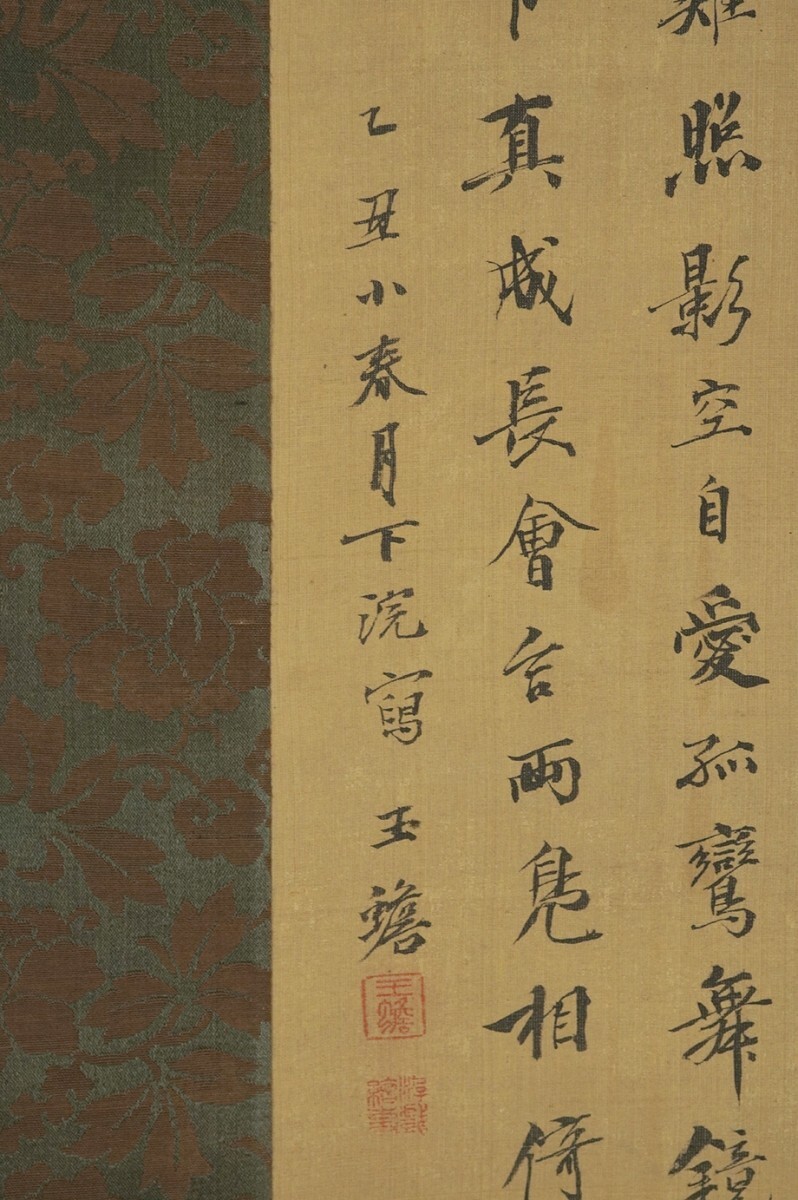 難照影空自愛孤鸞舞鏡
真成長會合兩鳧相倚
乙丑小春月下浣寫 玉蟾